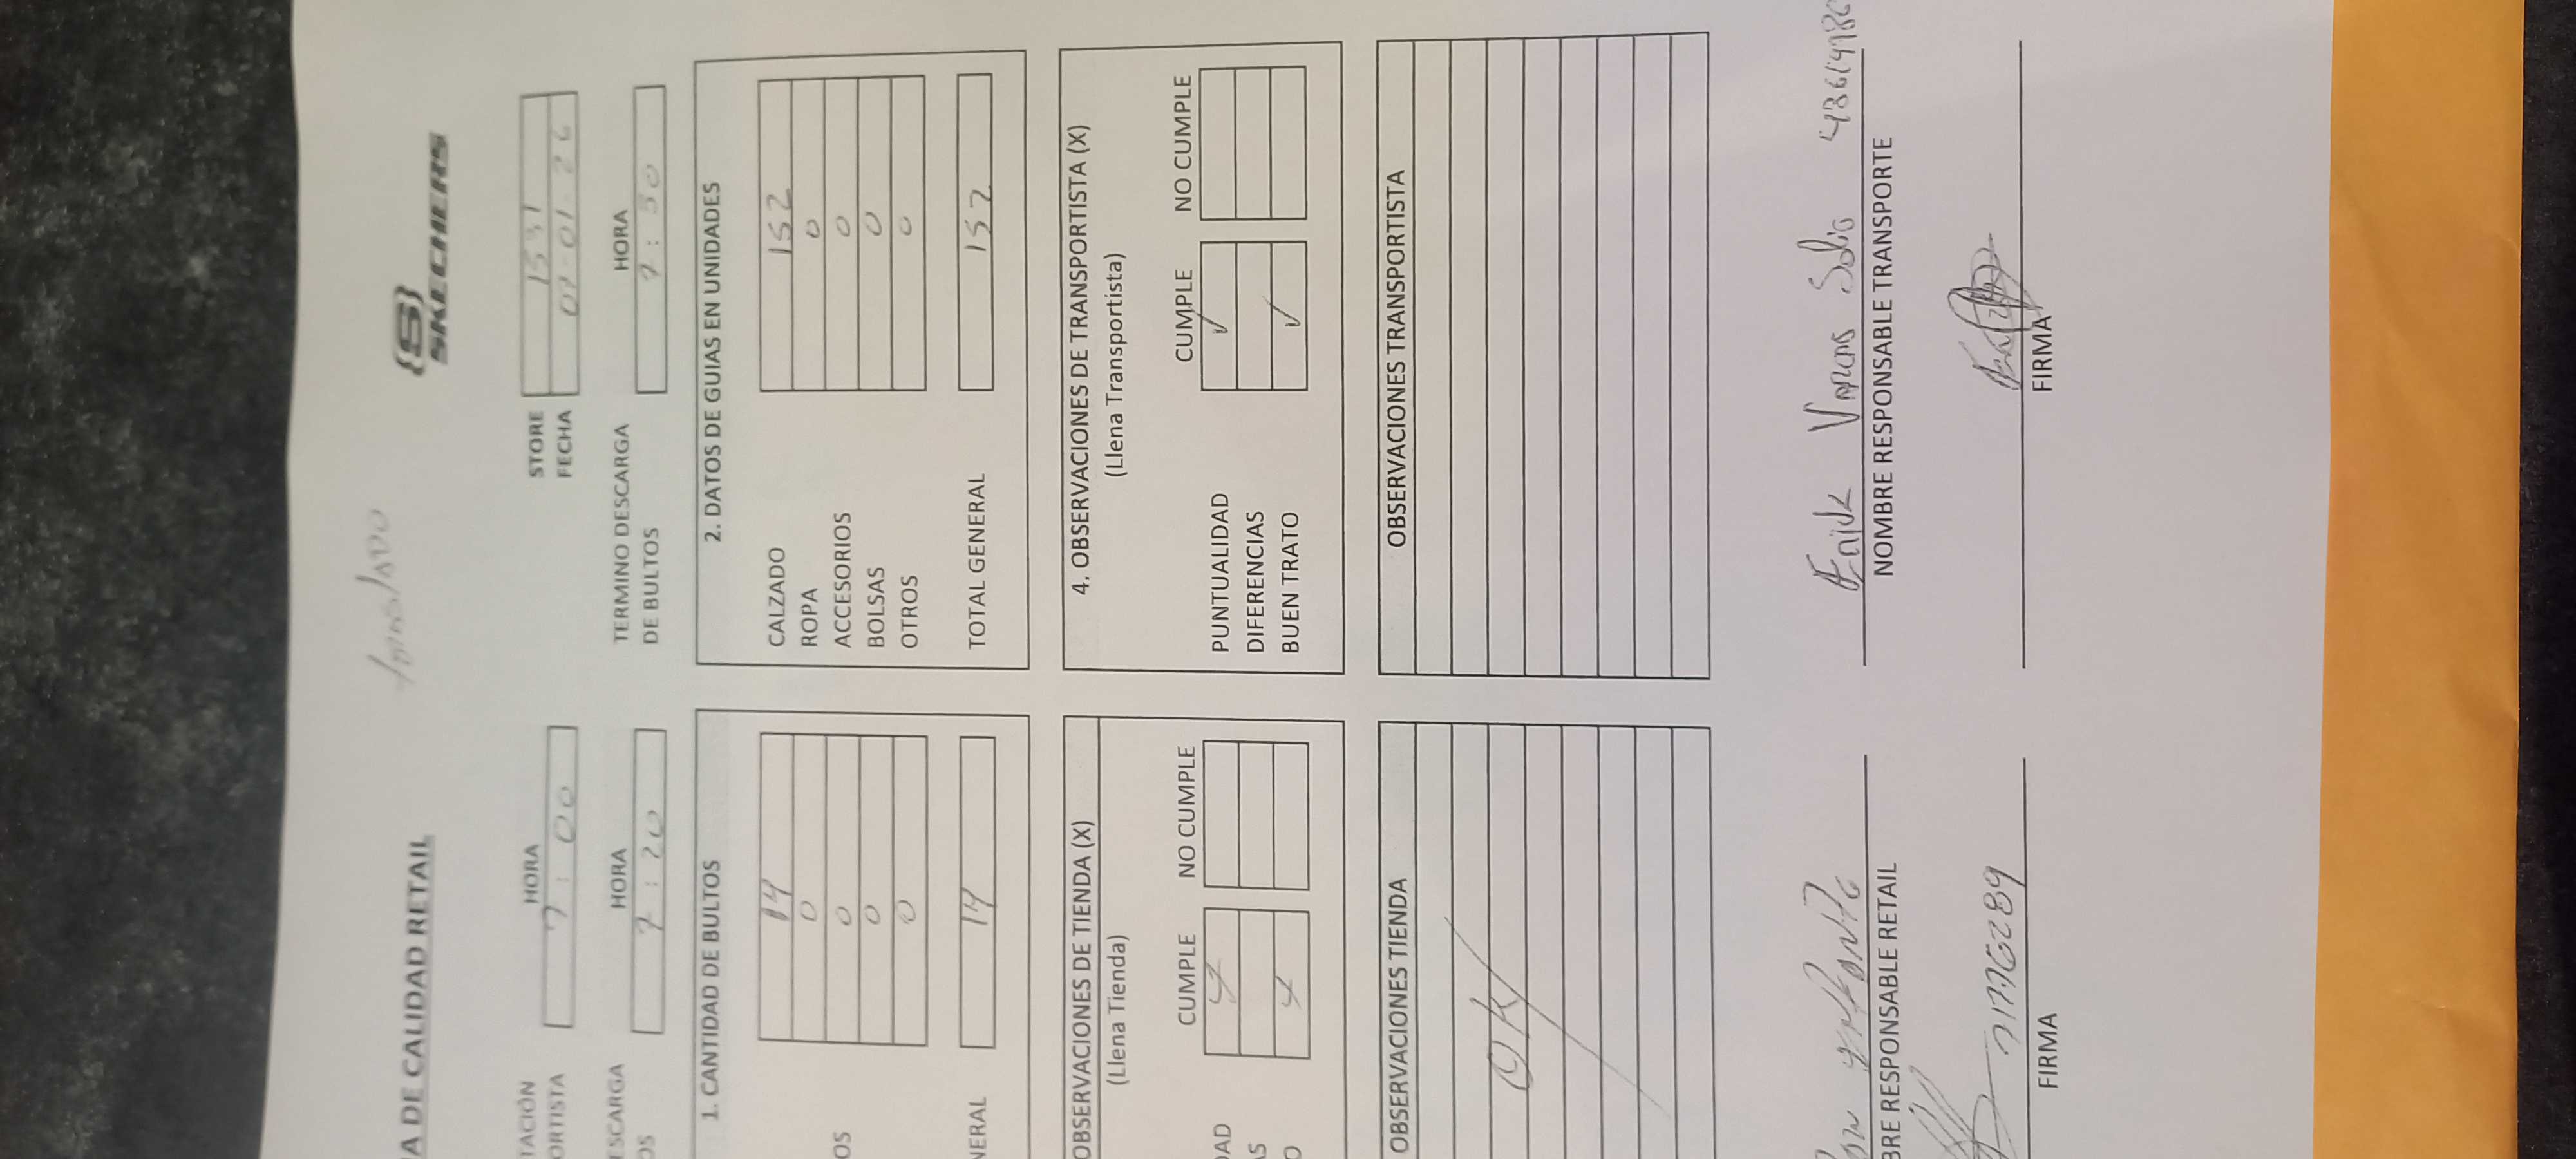 SKECHERS
A DE CALIDAD RETAIL
TACIÓN
ORTISTA
HORA
7:00
STORE
1531
FECHA
07-01-26
ESCARGA
OS
HORA
7:20
TERMINO DESCARGA
DE BULTOS
HORA
7:30
1. CANTIDAD DE BULTOS
14
0
OS 0
0
0
NERAL 14
2. DATOS DE GUIAS EN UNIDADES
CALZADO 152
ROPA 0
ACCESORIOS 0
BOLSAS 0
OTROS 0
TOTAL GENERAL 152
OBSERVACIONES DE TIENDA (X)
(Llena Tienda)
CUMPLE NO CUMPLE
DAD X
AS
O X
4. OBSERVACIONES DE TRANSPORTISTA (X)
(Llena Transportista)
CUMPLE NO CUMPLE
PUNTUALIDAD ✓
DIFERENCIAS
BUEN TRATO ✓
OBSERVACIONES TIENDA
OK
OBSERVACIONES TRANSPORTISTA
BRE RESPONSABLE RETAIL
FIRMA
Vargas
NOMBRE RESPONSABLE TRANSPORTE
FIRMA